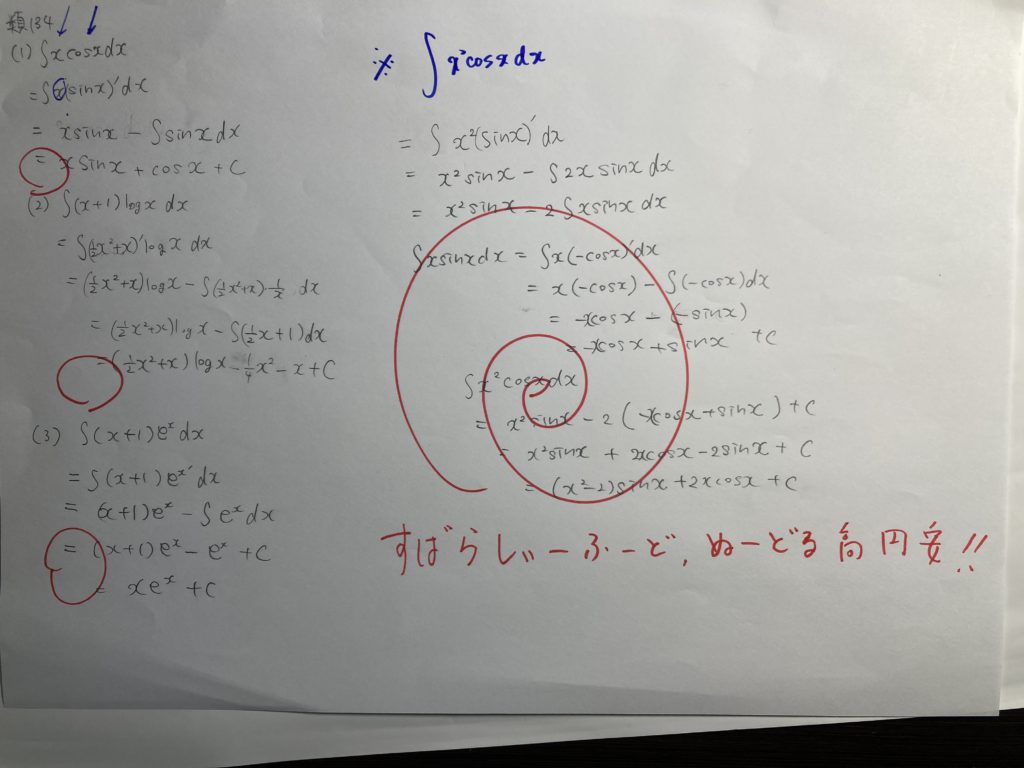 類134
(1) ∫xcosxdx
=∫x(sinx)'dx
= xsinx - ∫sinxdx
= xsinx + cosx + C
(2) ∫(x+1)logx dx
=∫(½x²+x)'logx dx
=(½x²+x)logx - ∫(½x²+x)·1/x dx
=(½x²+x)logx - ∫(½x+1)dx
=(½x²+x)logx - ¼x² - x + C
(3) ∫(x+1)eˣdx
=∫(x+1)eˣ'dx
= (x+1)eˣ - ∫eˣdx
= (x+1)eˣ - eˣ + C
= xeˣ + C
※ ∫x²cosxdx
= ∫x²(sinx)'dx
= x²sinx - ∫2xsinxdx
= x²sinx - 2∫xsinxdx
∫xsinxdx = ∫x(-cosx)'dx
= x(-cosx) - ∫(-cosx)dx
= -xcosx - (-sinx)
= -xcosx + sinx + C
∫x²cosxdx
= x²sinx - 2(-xcosx+sinx) + C
= x²sinx + 2xcosx - 2sinx + C
= (x²-2)sinx + 2xcosx + C
すばらしぃーふーど,ぬーどる高円安!!